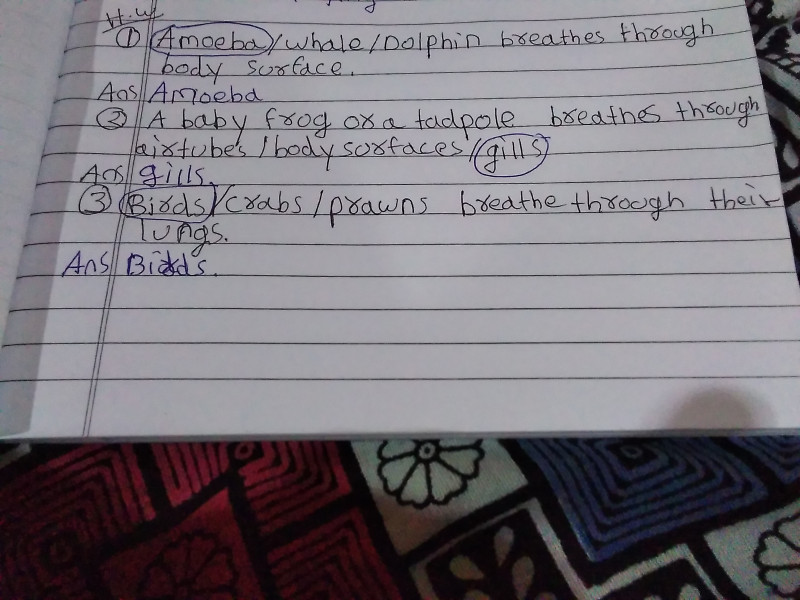 H.W
① Amoeba/whale/Dolphin breathes through
body surface.
Ans Amoeba
② A baby frog or a tadpole breathes through
airtubes/body surfaces/gills
Ans gills.
③ Birds/crabs/prawns breathe through their
lungs.
Ans Birds.